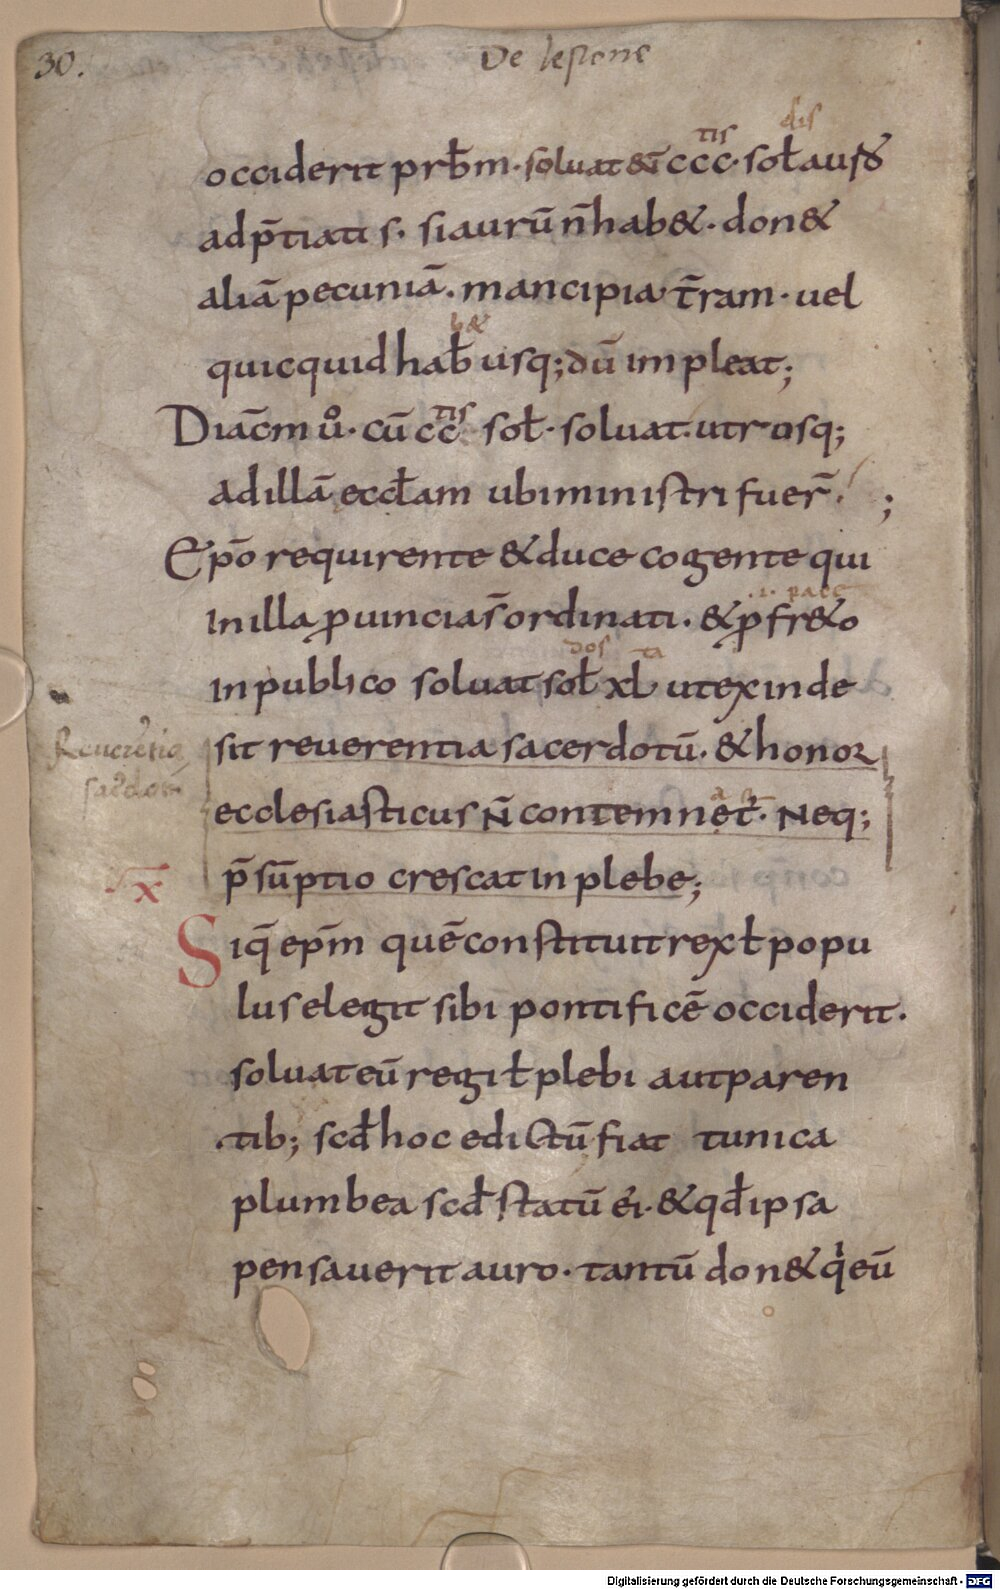 30.
De lesione
tis dis
occiderit prƀm· soluat eū ccc· sol̄ aus̄
adp̄tiati s· si aurū n̄ hab&· don&
aliā pecuniā· mancipia t̄ram· uel
b&
quicquid hab̄ usq; dū impleat;
tis
Diac̄m ů· cū cc sol̄· soluat· utrosq;
ad illā eccl̄am ubi ministri fuer̄· ;
Epō requirente & duce cogente qui
·i· pace
in illa ꝓuincia s̄ ordinati· & ꝓ fr&o
dos ta
in publico soluat sol̄ xl ut exinde
Reuerētia
sit reuerentia sacerdotū· & honor
sac̄dotū
ecclesiasticus N̄ contemnet̄· Neq;
p̄sūptio crescat in plebe;
x
Siq̄ ep̄m quē constituit rex ł popu
lus elegit sibi pontificē occiderit·
soluat eū regi ł plebi aut paren
tib; scd̄ hoc edictū fiat tunica
plumbea scd̄ statū ei· & qd̄ ipsa
pensauerit auro· tantū don& qͥ eū
Digitalisierung gefördert durch die Deutsche Forschungsgemeinschaft - DFG